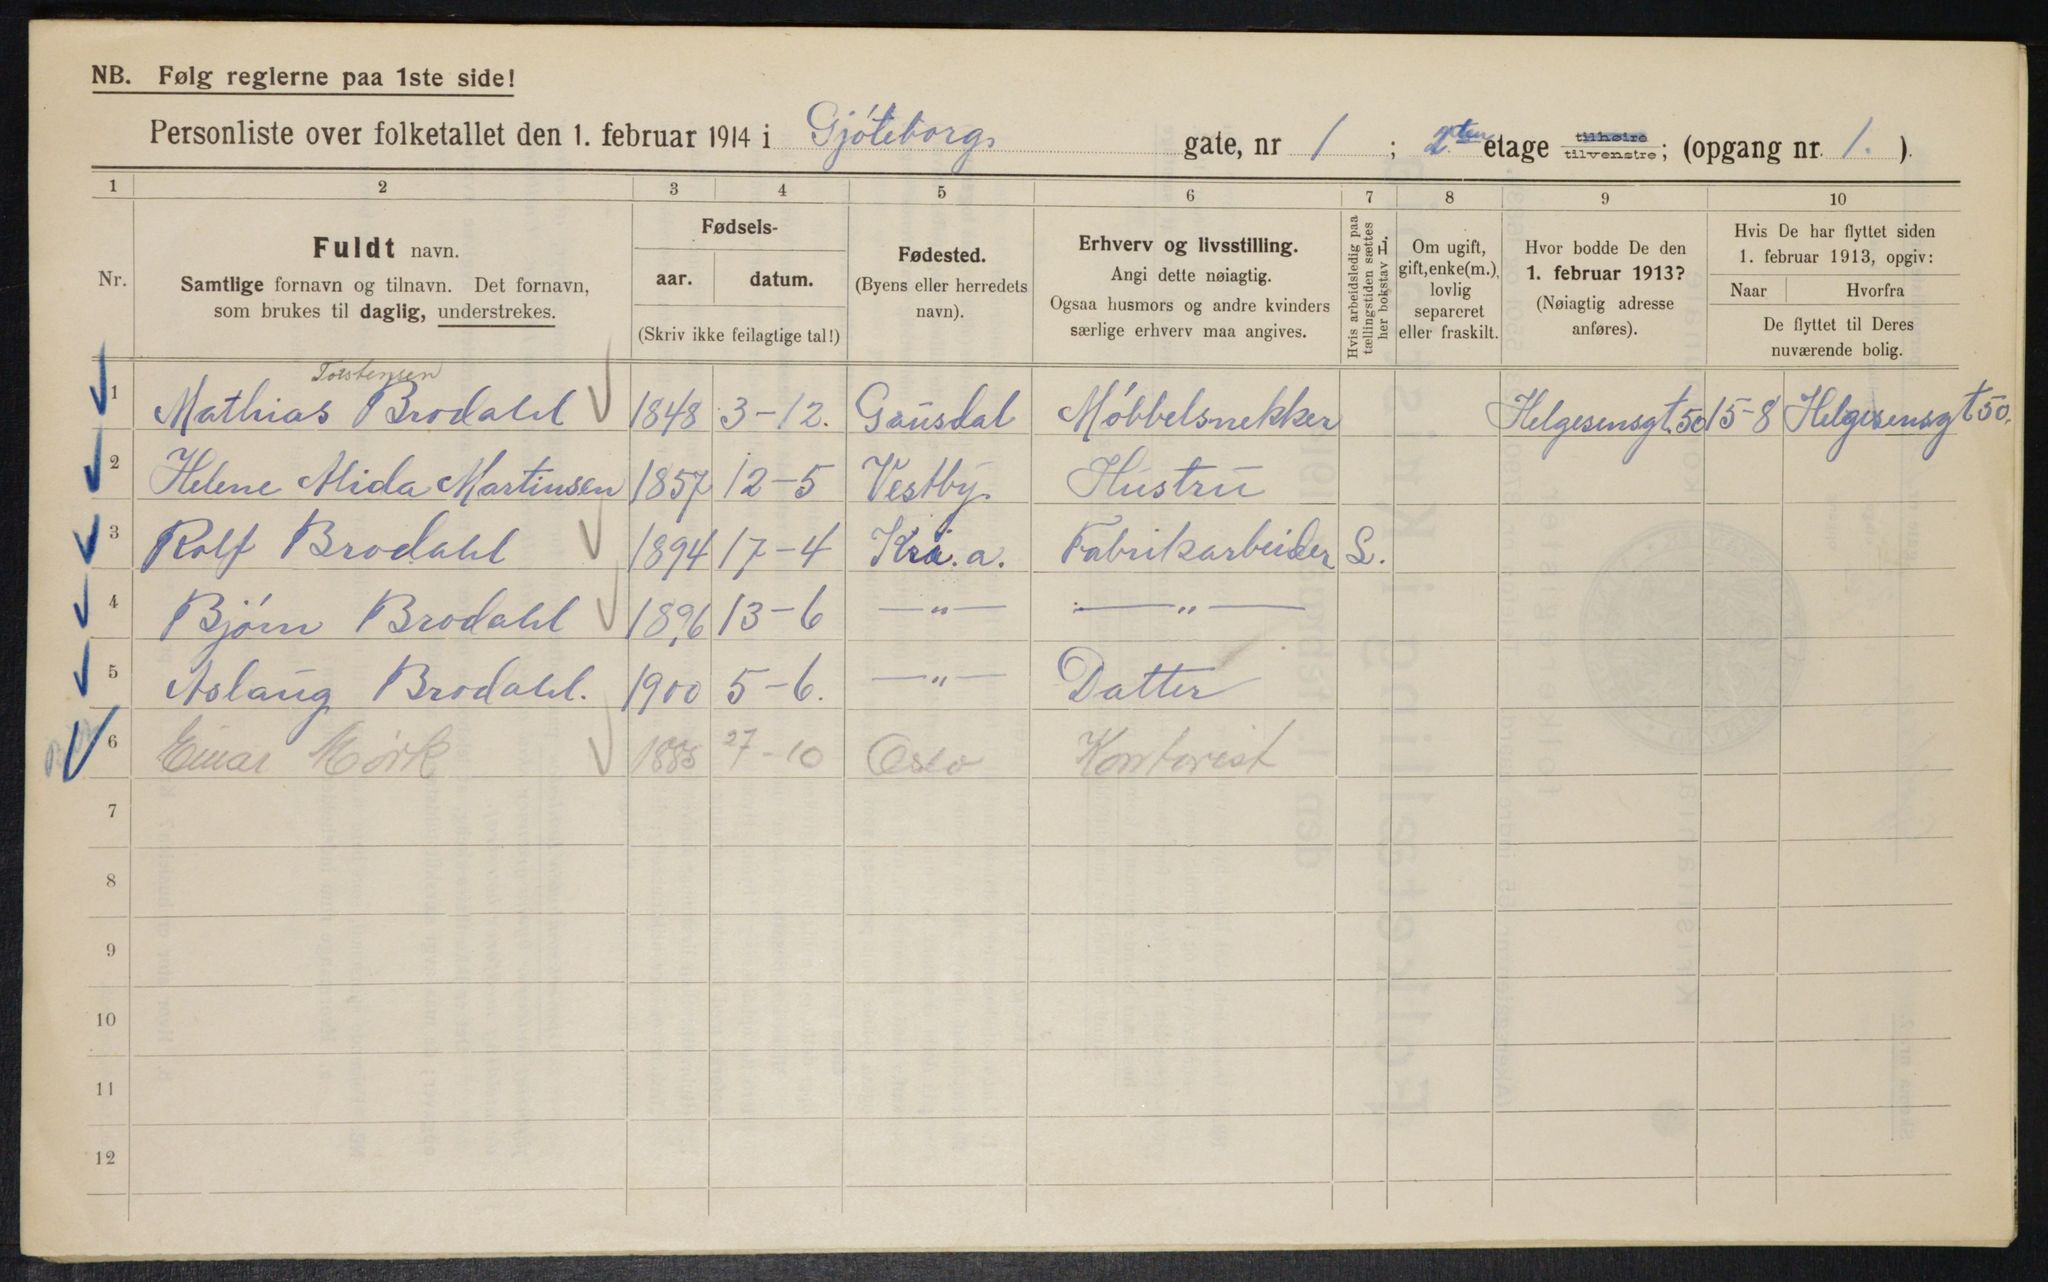 NB. Følg reglerne paa 1ste side!
Personliste over folketallet den 1. februar 1914 i Gjøteborgs gate, nr 1 ; 2den etage tilhøire tilvenstre; (opgang nr. 1. ).
1 2 3 4 5 6 7 8 9 10
Nr.
Fuldt navn.
Samtlige fornavn og tilnavn. Det fornavn,
som brukes til daglig, understrekes.
Fødsels-
aar. datum.
(Skriv ikke feilagtige tal!)
Fødested.
(Byens eller herredets
navn).
Erhverv og livsstilling.
Angi dette nøiagtig.
Ogsaa husmors og andre kvinders
særlige erhverv maa angives.
Hvis arbeidsledig paa
tællingstiden sættes
her bokstav L.
Om ugift,
gift, enke(m.),
lovlig
separeret
eller fraskilt.
Hvor bodde De den
1. februar 1913?
(Nøiagtig adresse
anføres).
Hvis De har flyttet siden
1. februar 1913, opgiv:
Naar Hvorfra
De flyttet til Deres
nuværende bolig.
Torstensen
1 Mathias Brodahl 1848 3-12. Gausdal Møbbelsnekker Helgesensgt. 50 15-8 Helgesensgt 50.
2 Helene Alida Martinsen 1857 12-5 Vestby. Hustru
3 Rolf Brodahl 1894 17-4 Kra.a. Fabrikarbeider L.
4 Bjørn Brodahl 1896 13-6 —"— —"—
5 Aslaug Brodahl. 1900 5-6. —"— Datter
6 Einar Mørk 1885 27-10 Oslo Kontorist
7
8
9
10
11
12